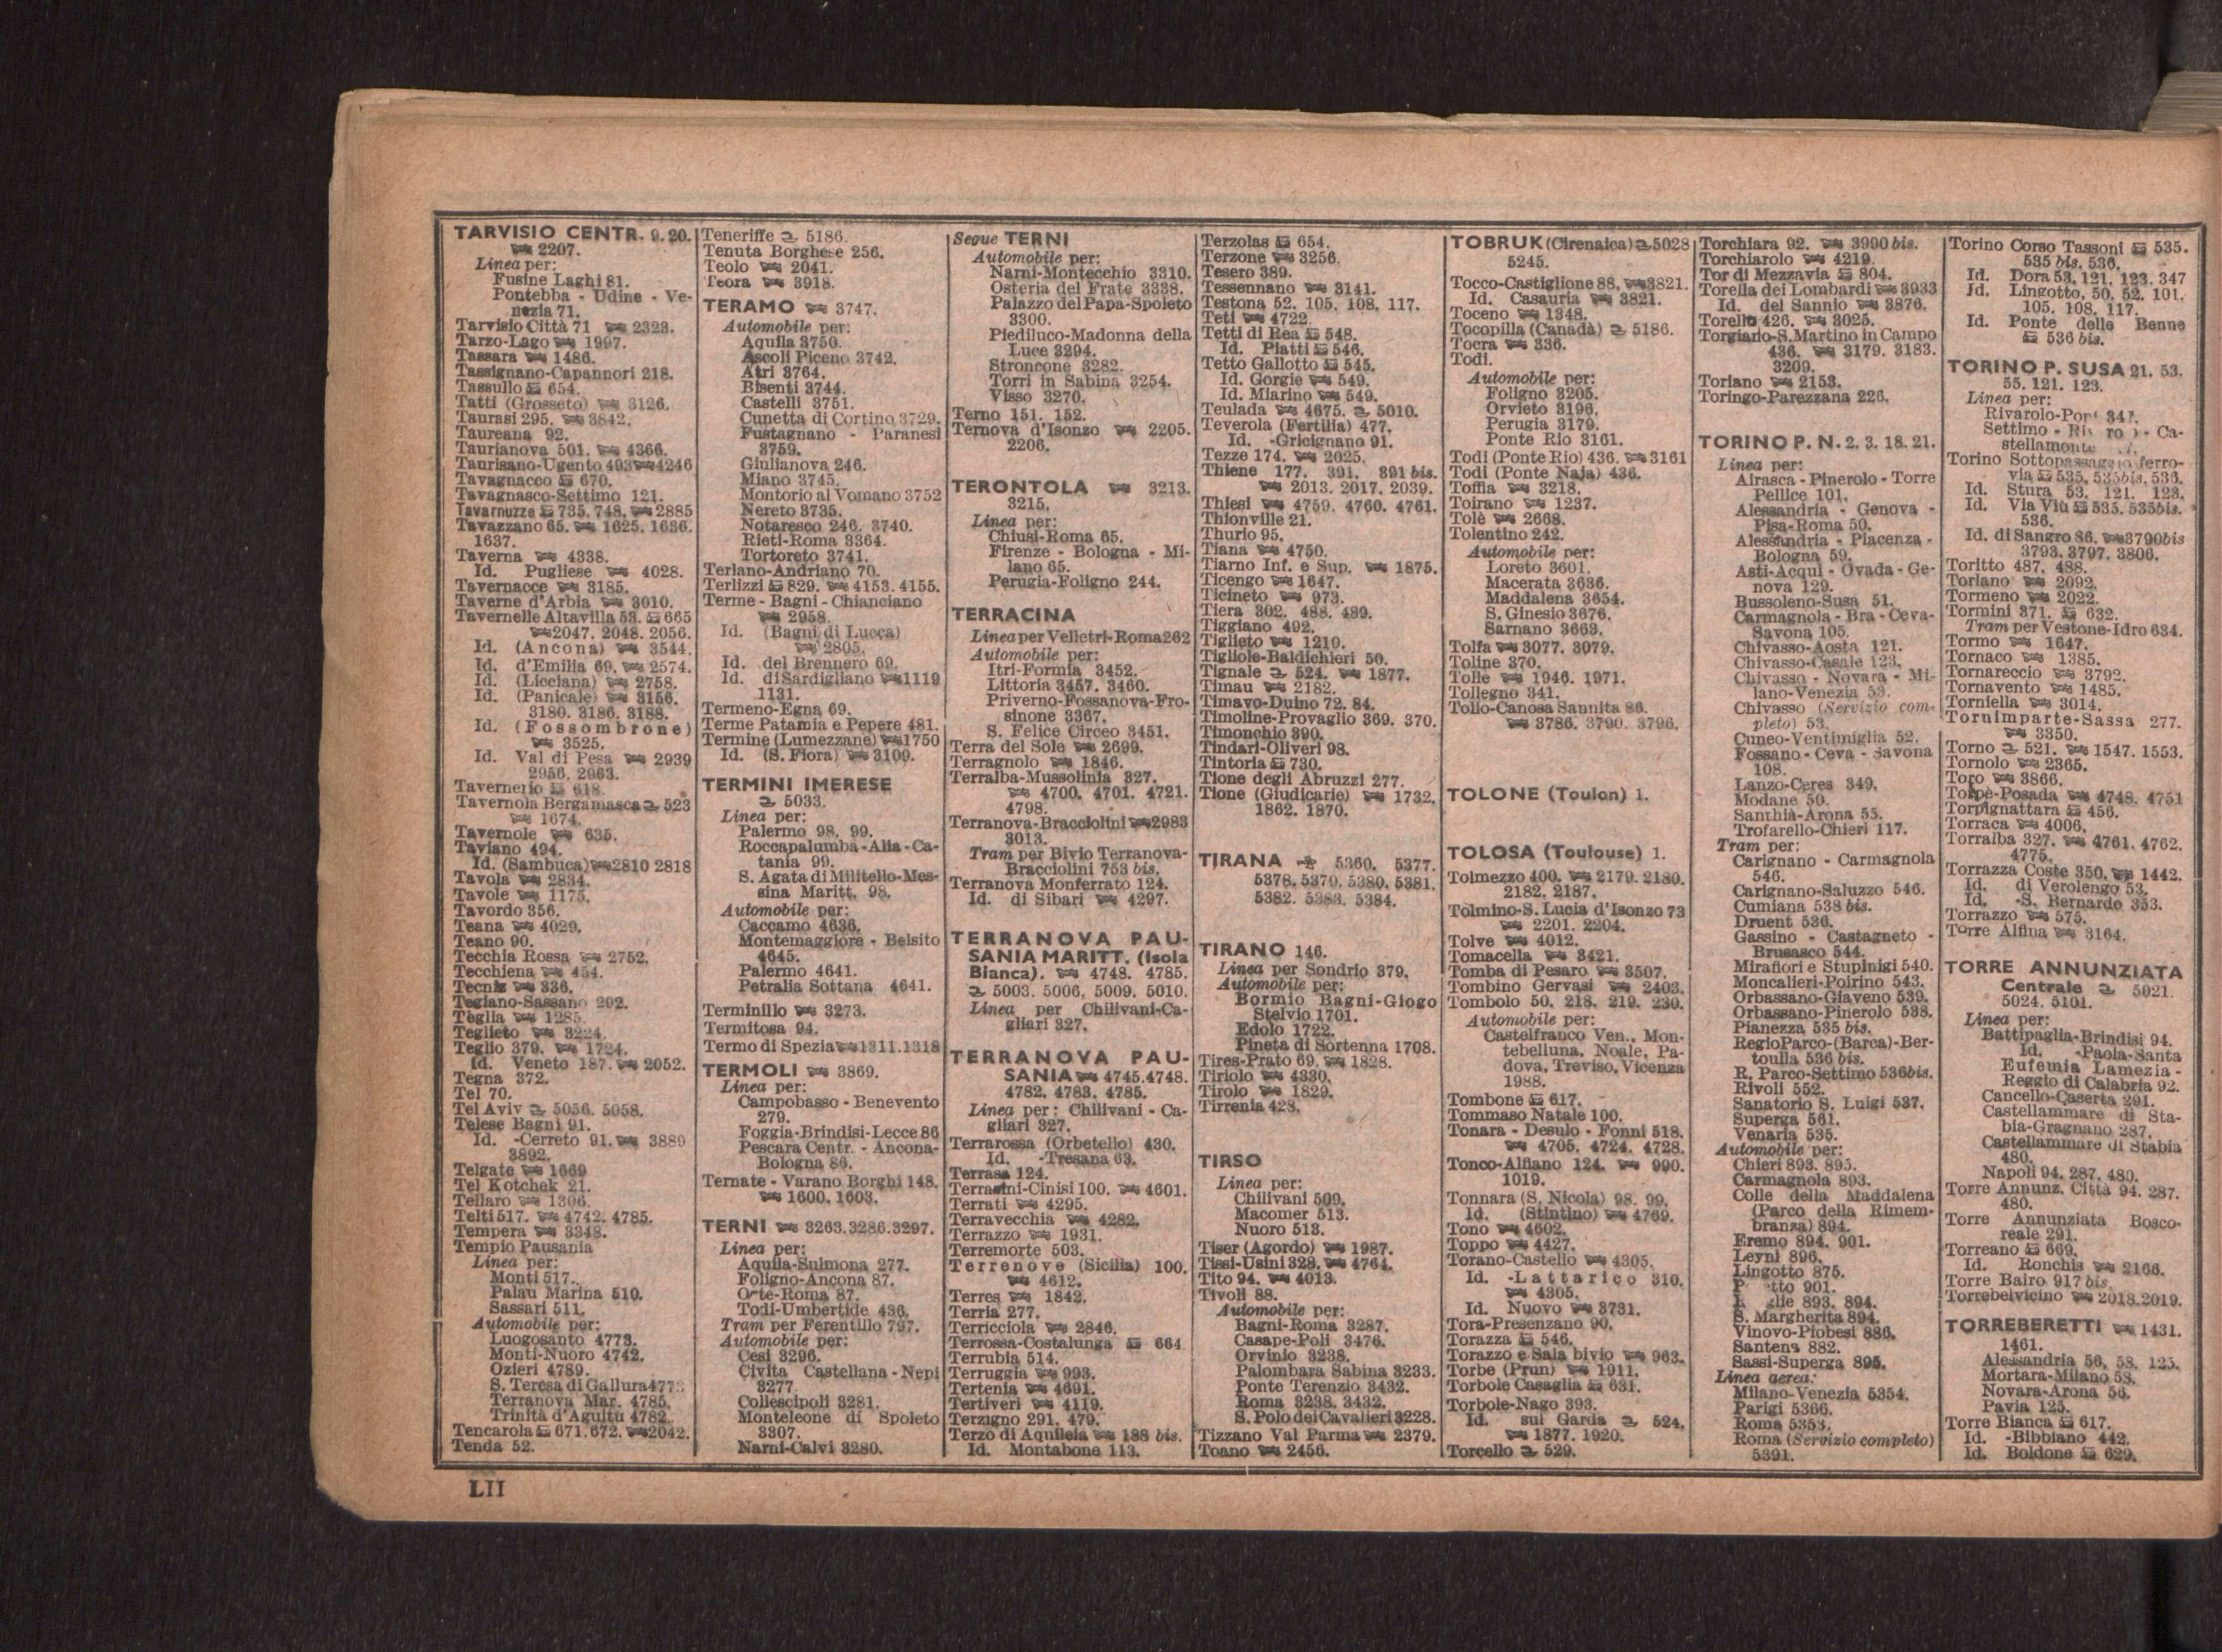 TARVISIO CENTR. 9. 20.
2207.
Linea per:
Fusine Laghi 81.
Pontebba - Udine - Ve-
nezia 71.
Tarvisio Città 71 2323.
Tarzo-Lago 1997.
Tassara 1486.
Tassignano-Capannori 218.
Tassullo 654.
Tatti (Grosseto) 3126.
Taurasi 295. 3842.
Taureana 92.
Taurianova 501. 4366.
Taurisano-Ugento 493 4246
Tavagnacco 670.
Tavagnasco-Settimo 121.
Tavarnuzze 735. 748. 2885
Tavazzano 65. 1625. 1636.
1637.
Taverna 4338.
Id. Pugliese 4028.
Tavernacce 3185.
Taverne d'Arbia 3010.
Tavernelle Altavilla 53. 665
2047. 2048. 2056.
Id. (Ancona) 3544.
Id. d'Emilia 69. 2574.
Id. (Licciana) 2758.
Id. (Panicale) 3156.
3180. 3186. 3188.
Id. (Fossombrone)
3525.
Id. Val di Pesa 2939
2956. 2963.
Tavernerio 618.
Tavernola Bergamasca 523
1674.
Tavernole 635.
Taviano 494.
Id. (Sambuca) 2810 2818
Tavola 2834.
Tavole 1175.
Tavordo 356.
Teana 4029.
Teano 90.
Tecchia Rossa 2752.
Tecchiena 454.
Tecnis 336.
Tegiano-Sassano 292.
Teglia 1285.
Teglieto 3224.
Teglio 379. 1724.
Id. Veneto 187. 2052.
Tegna 372.
Tel 70.
Tel Aviv 5056. 5058.
Telese Bagni 91.
Id. -Cerreto 91. 3889
3892.
Telgate 1669
Tel Kotchek 21.
Tellaro 1306.
Telti 517. 4742. 4785.
Tempera 3348.
Tempio Pausania
Linea per:
Monti 517.
Palau Marina 510.
Sassari 511.
Automobile per:
Luogosanto 4773.
Monti-Nuoro 4742.
Ozieri 4789.
S. Teresa di Gallura
Terranova Mar. 4785.
Trinità d'Agultu 4782.
Tencarola 671. 672. 2042.
Tenda 52.
Teneriffe 5186.
Tenuta Borghese 256.
Teolo 2041.
Teora 3918.
TERAMO 3747.
Automobile per:
Aquila 3750.
Ascoli Piceno 3742.
Atri 3764.
Bisenti 3744.
Castelli 3751.
Cunetta di Cortino 3729.
Fustagnano - Paranesi
3759.
Giulianova 246.
Miano 3745.
Montorio al Vomano 3752
Nereto 3735.
Notaresco 246. 3740.
Rieti-Roma 3364.
Tortoreto 3741.
Terlano-Andriano 70.
Terlizzi 829. 4153. 4155.
Terme - Bagni - Chianciano
2958.
Id. (Bagni di Lucca)
2805.
Id. del Brennero 69.
Id. di Sardigliano 1119
1131.
Termeno-Egna 69.
Terme Patamia e Pepere 481.
Termine (Lumezzane) 1750
Id. (S. Fiora) 3109.
TERMINI IMERESE
5033.
Linea per:
Palermo 98. 99.
Roccapalumba-Alia-Ca-
tania 99.
S. Agata di Militello-Mes-
sina Maritt. 98.
Automobile per:
Caccamo 4636.
Montemaggiore - Belsito
4645.
Palermo 4641.
Petralia Sottana 4641.
Terminillo 3273.
Termitosa 94.
Termo di Spezia 1311.1318
TERMOLI 3869.
Linea per:
Campobasso - Benevento
279.
Foggia-Brindisi-Lecce 86
Pescara Centr. - Ancona-
Bologna 86.
Ternate - Varano Borghi 148.
1600. 1603.
TERNI 3263.3286.3297.
Linea per:
Aquila-Sulmona 277.
Foligno-Ancona 87.
Orte-Roma 87.
Todi-Umbertide 436.
Tram per Ferentillo 797.
Automobile per:
Cesi 3296.
Civita Castellana - Nepi
3277
Collescipoli 3281.
Monteleone di Spoleto
3307.
Narni-Calvi 3280.
Segue TERNI
Automobile per:
Narni-Montecchio 3310.
Osteria del Frate 3338.
Palazzo del Papa-Spoleto
3300.
Piediluco-Madonna della
Luce 3294.
Stroncone 3282.
Torri in Sabina 3254.
Visso 3270.
Terno 151. 152.
Ternova d'Isonzo 2205.
2206.
TERONTOLA 3213.
3215.
Linea per:
Chiusi-Roma 65.
Firenze - Bologna - Mi-
lano 65.
Perugia-Foligno 244.
TERRACINA
Linea per Velletri-Roma 262
Automobile per:
Itri-Formia 3452.
Littoria 3457. 3460.
Priverno-Fossanova-Fro-
sinone 3367.
S. Felice Circeo 3451.
Terra del Sole 2699.
Terragnolo 1846.
Terralba-Mussolinia 327.
4700. 4701. 4721.
4798.
Terranova-Bracciolini 2983
3013.
Tram per Bivio Terranova-
Bracciolini 753 bis.
Terranova Monferrato 124.
Id. di Sibari 4297.
TERRANOVA PAU-
SANIA MARITT. (Isola
Bianca). 4748. 4785.
5003. 5006. 5009. 5010.
Linea per Chilivani-Ca-
gliari 327.
TERRANOVA PAU-
SANIA 4745.4748.
4782. 4783. 4785.
Linea per: Chilivani - Ca-
gliari 327.
Terrarossa (Orbetello) 430.
Id. -Tresana 63.
Terrasa 124.
Terrasini-Cinisi 100. 4601.
Terrati 4295.
Terravecchia 4282.
Terrazzo 1931.
Terremorte 503.
Terrenove (Sicilia) 100.
4612.
Terres 1842.
Terria 277.
Terricciola 2846.
Terrossa-Costalunga 664
Terrubia 514.
Terruggia 993.
Tertenia 4691.
Tertiveri 4119.
Terzigno 291. 479.
Terzo di Aquileia 188 bis.
Id. Montabone 113.
Terzolas 654.
Terzone 3256.
Tesero 389.
Tessennano 3141.
Testona 52. 105. 108. 117.
Teti 4722.
Tetti di Rea 548.
Id. Piatti 546.
Tetto Gallotto 545.
Id. Gorgie 549.
Id. Miarino 549.
Teulada 4675. 5010.
Teverola (Fertilia) 477.
Id. -Gricignano 91.
Tezze 174. 2025.
Thiene 177. 391. 391 bis.
2013. 2017. 2039.
Thiesi 4759. 4760. 4761.
Thionville 21.
Thurio 95.
Tiana 4750.
Tiarno Inf. e Sup. 1875.
Ticengo 1647.
Ticineto 973.
Tiera 302. 488. 489.
Tiggiano 492.
Tiglieto 1210.
Tigliole-Baldichieri 50.
Tignale 524. 1877.
Timau 2182.
Timavo-Duino 72. 84.
Timoline-Provaglio 369. 370.
Timonchio 390.
Tindari-Oliveri 98.
Tintoria 730.
Tione degli Abruzzi 277.
Tione (Giudicarie) 1732.
1862. 1870.
TIRANA 5360. 5377.
5378. 5379. 5380. 5381.
5382. 5383. 5384.
TIRANO 146.
Linea per Sondrio 379.
Automobile per:
Bormio Bagni-Giogo
Stelvio 1701.
Edolo 1722.
Pineta di Sortenna 1708.
Tires-Prato 69. 1828.
Tiriolo 4330.
Tirolo 1829.
Tirrenia 428.
TIRSO
Linea per:
Chilivani 509.
Macomer 513.
Nuoro 513.
Tiser (Agordo) 1987.
Tissi-Usini 328. 4764.
Tito 94. 4013.
Tivoli 88.
Automobile per:
Bagni-Roma 3287.
Casape-Poli 3476.
Orvinio 3238.
Palombara Sabina 3233.
Ponte Terenzio 3432.
Roma 3238. 3432.
S. Polo dei Cavalieri 3228.
Tizzano Val Parma 2379.
Toano 2456.
TOBRUK (Cirenaica) 5028
5245.
Tocco-Castiglione 88. 3821.
Id. Casauria 3821.
Toceno 1348.
Tocopilla (Canadà) 5186.
Tocra 336.
Todi.
Automobile per:
Foligno 3205.
Orvieto 3196.
Perugia 3179.
Ponte Rio 3161.
Todi (Ponte Rio) 436. 3161
Todi (Ponte Naja) 436.
Toffia 3218.
Toirano 1237.
Tolè 2668.
Tolentino 242.
Automobile per:
Loreto 3601.
Macerata 3636.
Maddalena 3654.
S. Ginesio 3676.
Sarnano 3663.
Tolfa 3077. 3079.
Toline 370.
Tolle 1946. 1971.
Tollegno 341.
Tollo-Canosa Sannita 86.
3786. 3790. 3796.
TOLONE (Toulon) 1.
TOLOSA (Toulouse) 1.
Tolmezzo 400. 2179. 2180.
2182. 2187.
Tolmino-S. Lucia d'Isonzo 73
2201. 2204.
Tolve 4012.
Tomacella 3421.
Tomba di Pesaro 3507.
Tombino Gervasi 2403.
Tombolo 50. 218. 219. 230.
Automobile per:
Castelfranco Ven., Mon-
tebelluna, Noale, Pa-
dova, Treviso, Vicenza
1988.
Tombone 617.
Tommaso Natale 100.
Tonara - Desulo - Fonni 518.
4705. 4724. 4728.
Tonco-Alfiano 124. 990.
1019.
Tonnara (S. Nicola) 98. 99.
Id. (Stintino) 4769.
Tono 4602.
Toppo 4427.
Torano-Castello 4305.
Id. -Lattarico 310.
4305.
Id. Nuovo 3731.
Tora-Presenzano 90.
Torazza 546.
Torazzo e Sala bivio 963.
Torbe (Prun) 1911.
Torbole Casaglia 631.
Torbole-Nago 393.
Id. sul Garda 524.
1877. 1920.
Torcello 529.
Torchiara 92. 3990 bis.
Torchiarolo 4219.
Tor di Mezzavia 804.
Torella dei Lombardi 3933
Id. del Sannio 3876.
Torello 426. 3025.
Torgiano-S. Martino in Campo
436. 3179. 3183.
3209.
Toriano 2153.
Toringo-Parezzana 226.
TORINO P. N. 2. 3. 18. 21.
Linea per:
Airasca - Pinerolo - Torre
Pellice 101.
Alessandria - Genova -
Pisa-Roma 50.
Alessandria - Piacenza -
Bologna 59.
Asti-Acqui - Ovada - Ge-
nova 129.
Bussoleno-Susa 51.
Carmagnola - Bra - Ceva-
Savona 105.
Chivasso-Aosta 121.
Chivasso-Casale 123.
Chivasso - Novara - Mi-
lano-Venezia 53.
Chivasso (Servizio com-
pleto) 53.
Cuneo-Ventimiglia 52.
Fossano - Ceva - Savona
108.
Lanzo-Ceres 349.
Modane 50.
Santhià-Arona 55.
Trofarello-Chieri 117.
Tram per:
Carignano - Carmagnola
546.
Carignano-Saluzzo 546.
Cumiana 538 bis.
Druent 536.
Gassino - Castagneto -
Brusasco 544.
Mirafiori e Stupinigi 540.
Moncalieri-Poirino 543.
Orbassano-Giaveno 539.
Orbassano-Pinerolo 538.
Pianezza 535 bis.
Regio Parco-(Barca)-Ber-
toulla 536 bis.
R. Parco-Settimo 536 bis.
Rivoli 552.
Sanatorio S. Luigi 537.
Superga 561.
Venaria 535.
Automobile per:
Chieri 893. 895.
Carmagnola 893.
Colle della Maddalena
(Parco della Rimem-
branza) 894.
Eremo 894. 901.
Leynì 896.
Lingotto 875.
901.
893. 894.
S. Margherita 894.
Vinovo-Piobesi 886.
Santena 882.
Sassi-Superga 895.
Linea aerea:
Milano-Venezia 5354.
Parigi 5366.
Roma 5353.
Roma (Servizio completo)
5391.
Torino Corso Tassoni 535.
535 bis. 536.
Id. Dora 53. 121. 123. 347
Id. Lingotto, 50. 52. 101.
105. 108. 117.
Id. Ponte delle Benne
536 bis.
TORINO P. SUSA 21. 53.
55. 121. 123.
Linea per:
Rivarolo-Pont 347.
Settimo - - Ca-
stellamonte
Torino Sottopassaggio ferro-
via 535. 535bis. 536.
Id. Stura 53. 121. 123.
Id. Via Viù 535. 535bis.
536.
Id. di Sangro 86. 3790bis
3793. 3797. 3806.
Toritto 487. 488.
Torlano 2092.
Tormeno 2022.
Tormini 371. 632.
Tram per Vestone-Idro 634.
Tormo 1647.
Tornaco 1385.
Tornareccio 3792.
Tornavento 1485.
Torniella 3014.
Tornimparte-Sassa 277.
3350.
Torno 521. 1547. 1553.
Tornolo 2365.
Toro 3866.
Torpè-Posada 4748. 4751
Torpignattara 456.
Torraca 4006.
Torralba 327. 4761. 4762.
4775.
Torrazza Coste 350. 1442.
Id. di Verolengo 53.
Id. -S. Bernardo 353.
Torrazzo 575.
Torre Alfina 3164.
TORRE ANNUNZIATA
Centrale 5021.
5024. 5101.
Linea per:
Battipaglia-Brindisi 94.
Id. -Paola-Santa
Eufemia Lamezia-
Reggio di Calabria 92.
Cancello-Caserta 291.
Castellammare di Sta-
bia-Gragnano 287.
Castellammare di Stabia
480.
Napoli 94. 287. 480.
Torre Annunz. Città 94. 287.
480.
Torre Annunziata Bosco-
reale 291.
Torreano 669.
Id. Ronchis 2166.
Torre Bairo 917 bis.
Torrebelvicino 2018.2019.
TORREBERETTI 1431.
1461.
Alessandria 56. 58. 125.
Mortara-Milano 58.
Novara-Arona 56.
Pavia 125.
Torre Bianca 617.
Id. -Bibbiano 442.
Id. Boldone 629.
LII